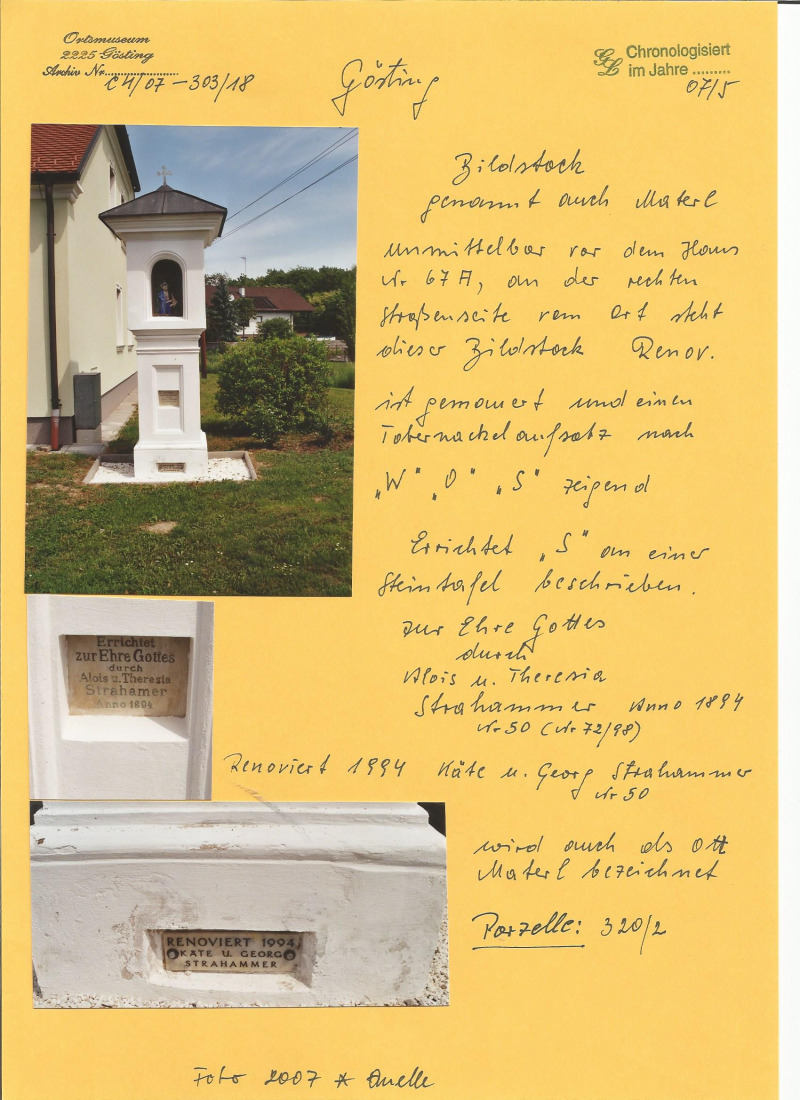 Ortsmuseum
2225 Gösting
Archiv Nr.....................
C4/07 – 303/18
Gösting
GL Chronologisiert
im Jahre .........
07/5
Bildstock
genannt auch Materl
unmittelbar vor dem Haus
Nr 67A, an der rechten
Straßenseite vom Ort steht
dieser Bildstock Renov.
ist gemauert und einen
Tabernackelaufsatz nach
„W" „O" „S" zeigend
Errichtet „S" an einer
Steintafel beschrieben.
zur Ehre Gottes
durch
Alois u. Theresia
Strahammer Anno 1894
Nr 50 (Nr 72/98)
Errichtet
zur Ehre Gottes
durch
Alois u. Theresia
Strahamer
Anno 1894
Renoviert 1994 Käte u. Georg Strahammer
Nr 50
wird auch als Ott
Materl bezeichnet
Parzelle: 320/2
RENOVIERT 1994
KÄTE U. GEORG
STRAHAMMER
Foto 2007 * Quelle